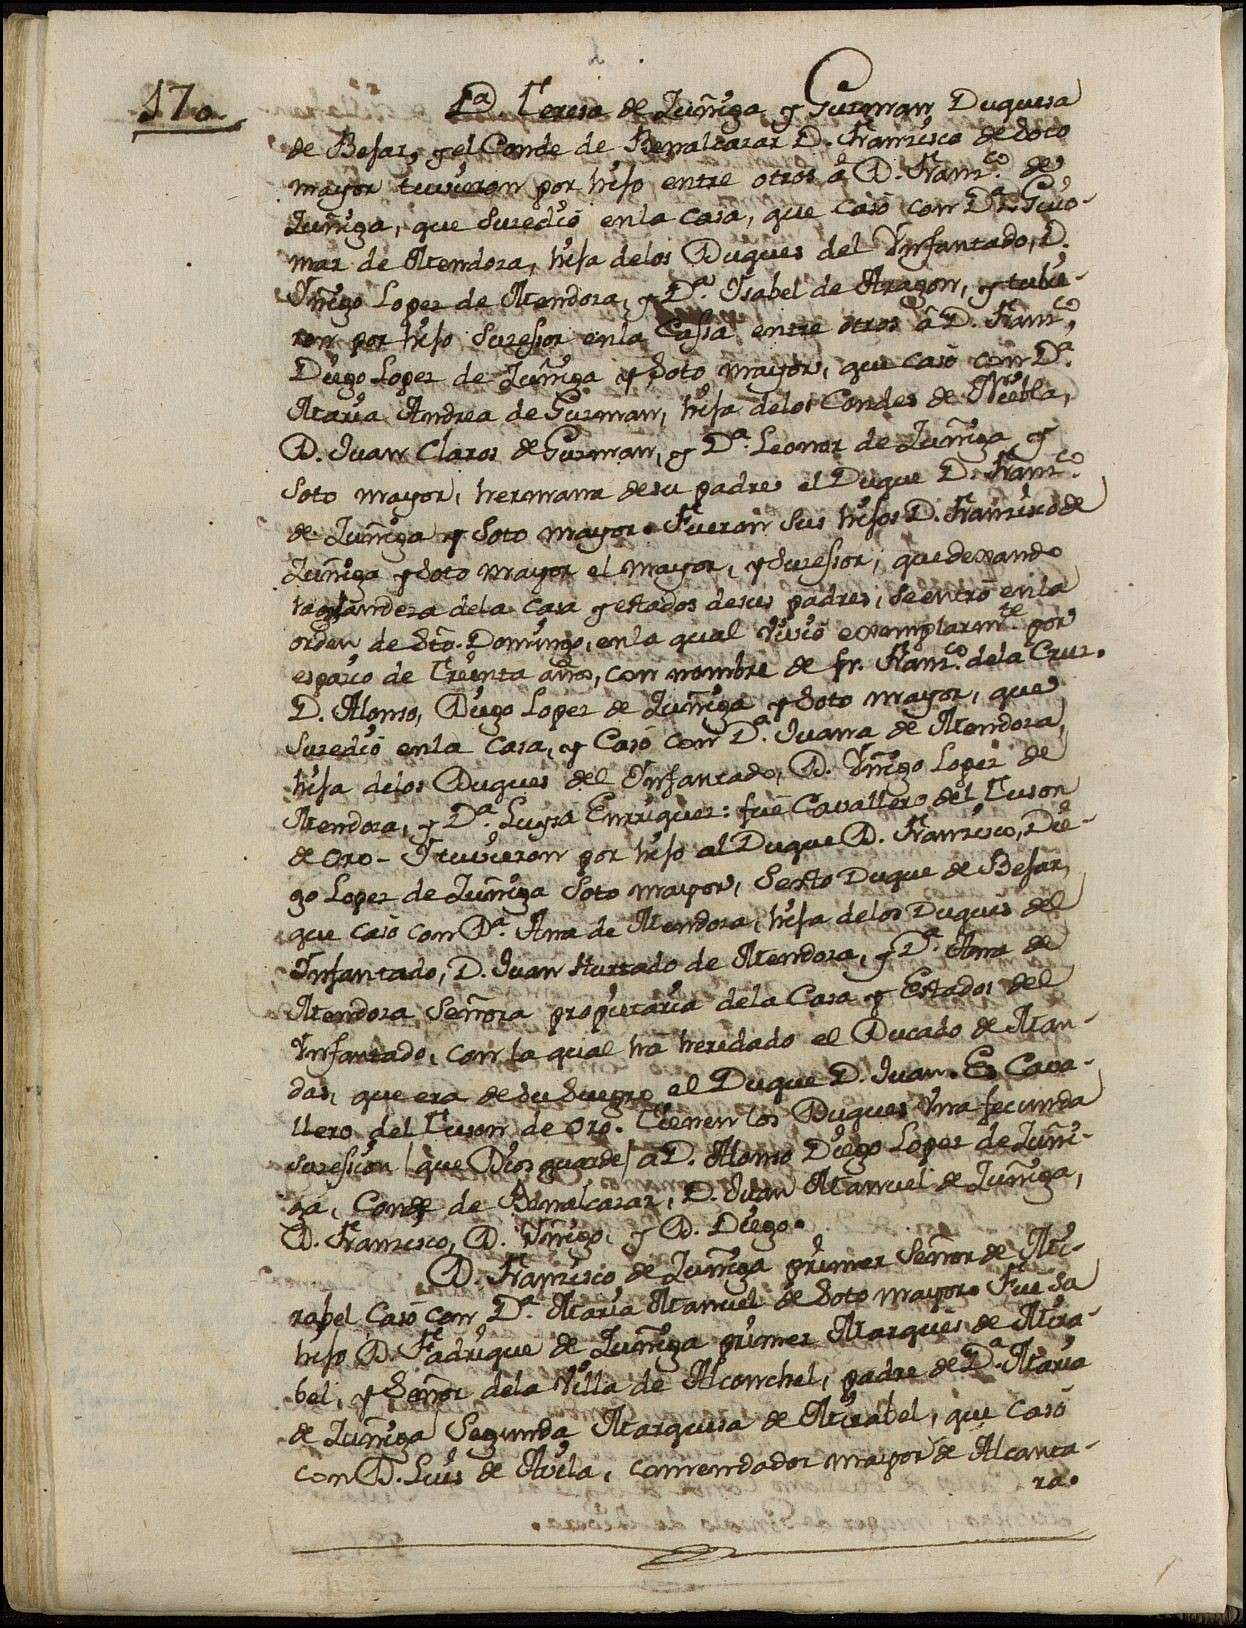 170
Dª. Teresa de Zuñiga y Guzman Duquesa
de Bejar, y el Conde de Benalcazar D. Francisco de Soto
mayor tuvieron por hijo entre otros à D. Franᶜᵒ. de
Zuñiga, que Suzedió en la casa, que casó con Dª. Guio-
mar de Mendoza, hija delos Duques del Ynfantado, D.
Yñigo Lopez de Mendoza, y Dª. Ysabel de Aragon, y tubie-
ron por hijo Suzessor en la Cassa entre otros â D. Franᶜᵒ,
Diego Lopez de Zuñiga y Soto mayor, que casó con Dª.
Maria Andrea de Guzman, hija delos Condes de Niebla,
D. Juan Claros de Guzman, y Dª. Leonor de Zuñiga y
Soto mayor, hermana desu padre el Duque D. Franᶜᵒ.
de Zuñiga y Soto mayor. Fueron Sus hijos D. Francisco de
Zuñiga y Soto mayor el mayor, y Suzessor, que dexando
la grandeza dela casa y estados desus padres, se entrò en la
orden de Stô. Domingo, en la qual vivió exemplarmᵗᵉ por
espacio de treinta años, con nombre de fr. Franᶜᵒ. dela Cruz.
D. Alonso, Diego Lopez de Zuñiga y Soto mayor, que
Suzedió enla Casa, y Casó con Dª. Juana de Mendoza,
hija delos Duques del Ynfantado, D. Yñigo Lopez de
Mendoza, y Dª. Luysa Enrriquez: fuè Cavallero del Tuson
de Oro - Y tuvieron por hijo al Duque D. Francisco, Die-
go Lopez de Zuñiga Soto mayor, Sexto Duque de Bejar,
que casó con Dª. Ana de Mendoza, hija delos Duques del
Ynfantado, D. Juan Hurtado de Mendoza, y Dª. Ana de
Mendoza Señora propietaria dela Casa y Estados del
Ynfantado, con la qual hà heridado el Ducado de Man-
das, que era de su Suegro el Duque D. Juan. Es Cava-
llero del Tuson de Oro. Tienen los Duques Vna fecunda
suzesion (que Dios guarde) à D. Alonso Diego Lopez de Zuñi-
ga, Conde de Benalcazar, D. Juan Manuel de Zuñiga,
D. Francisco, D. Yñigo, y D. Diego.
D. Francisco de Zuñiga primer Señor de Mi-
rabel Casó con Dª. Maria Manuel de Soto mayor. Fue Su
hijo D. Fadrique de Zuñiga primer Marques de Mira-
bel, y Señor dela Villa de Alconchel, padre de Dª. Maria
de Zuñiga Segunda Marquesa de Mirabel, que Casó
con D. Luis de Avila, comendador mayor de Alcanta-
ra.